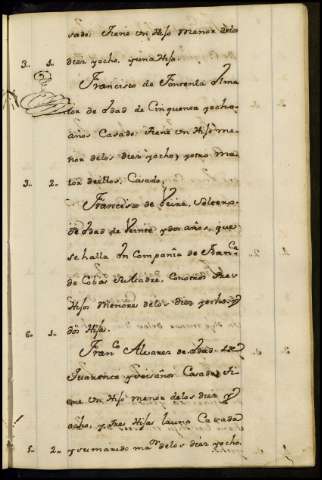 sado. tiene un Hijo menor delos
3.. 1. diez yocho, yuna Hija.
Francisco de
tor de edad de Cinquenta yocho
años Casado. tiene un Hijo me=
nor delos diez yocho, y otro ma=
3.. 2. ior deellos, Casado.
Francisco de Soltero.
de edad de Veinte ydos años, que
sehalla en Compañia de Fran.ca
de Cobas su Madre, con otros tres
Hijos menores delos diez yocho, y
6. 1. dos Hijas.
Fran.co Alvarez de edad de
quarenta yseisaños Casado, ti=
ene un Hijo menor delos diez y
ocho, y tres Hijas launa Casada
5.. 2.. y sumarido ma.or delos diez yocho.